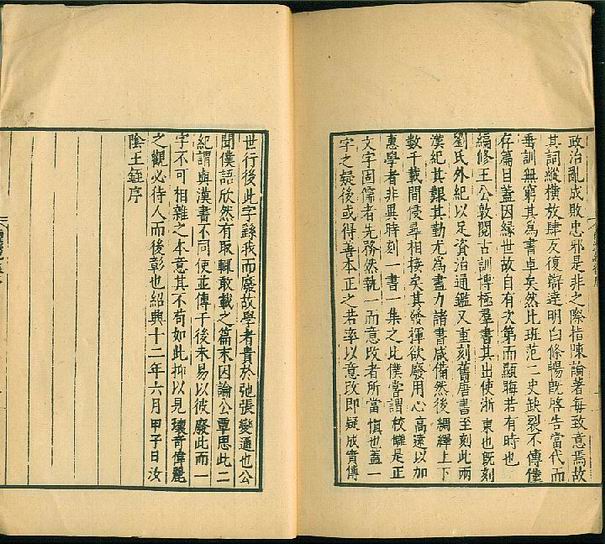 政治亂成敗忠邪是非之際指陳論著每致意焉故
其詞縱橫放肆反復辯達明白條暢既啓告當代而
垂訓無窮其為書卓矣然比班范二史缺裂不傳僅
存篇目蓋因緣世故自有次第而顯晦若有時也
編修王公敦閱古訓博極群書其出使浙東也既刻
劉氏外紀以足資治通鑑又重刻舊唐書至刻此兩
漢紀其艱其勤尤為盡力諸書咸備然後紬繹上下
數千載間俊尋相接矣其發揮欲廢用心高遠以加
惠學者非異時刻一書一集之比僕嘗謂校讎是正
文字固儒者先務然執一而意改者所當慎也蓋一
字之疑後或得善本正之若率以意改即疑成實傳
世行後此字繇我而廢故學者貴於弛張變通也公
聞僕語欣然有取輒敢載之篇末因論公覃思此二
紀謂與漢書不同使並傳于後未易以彼廢此而一
字不可相雜之本意其不苟如此抑以見瓌奇偉麗
之觀必待人而後彰也紹興十二年六月甲子日汝
陰王銍序